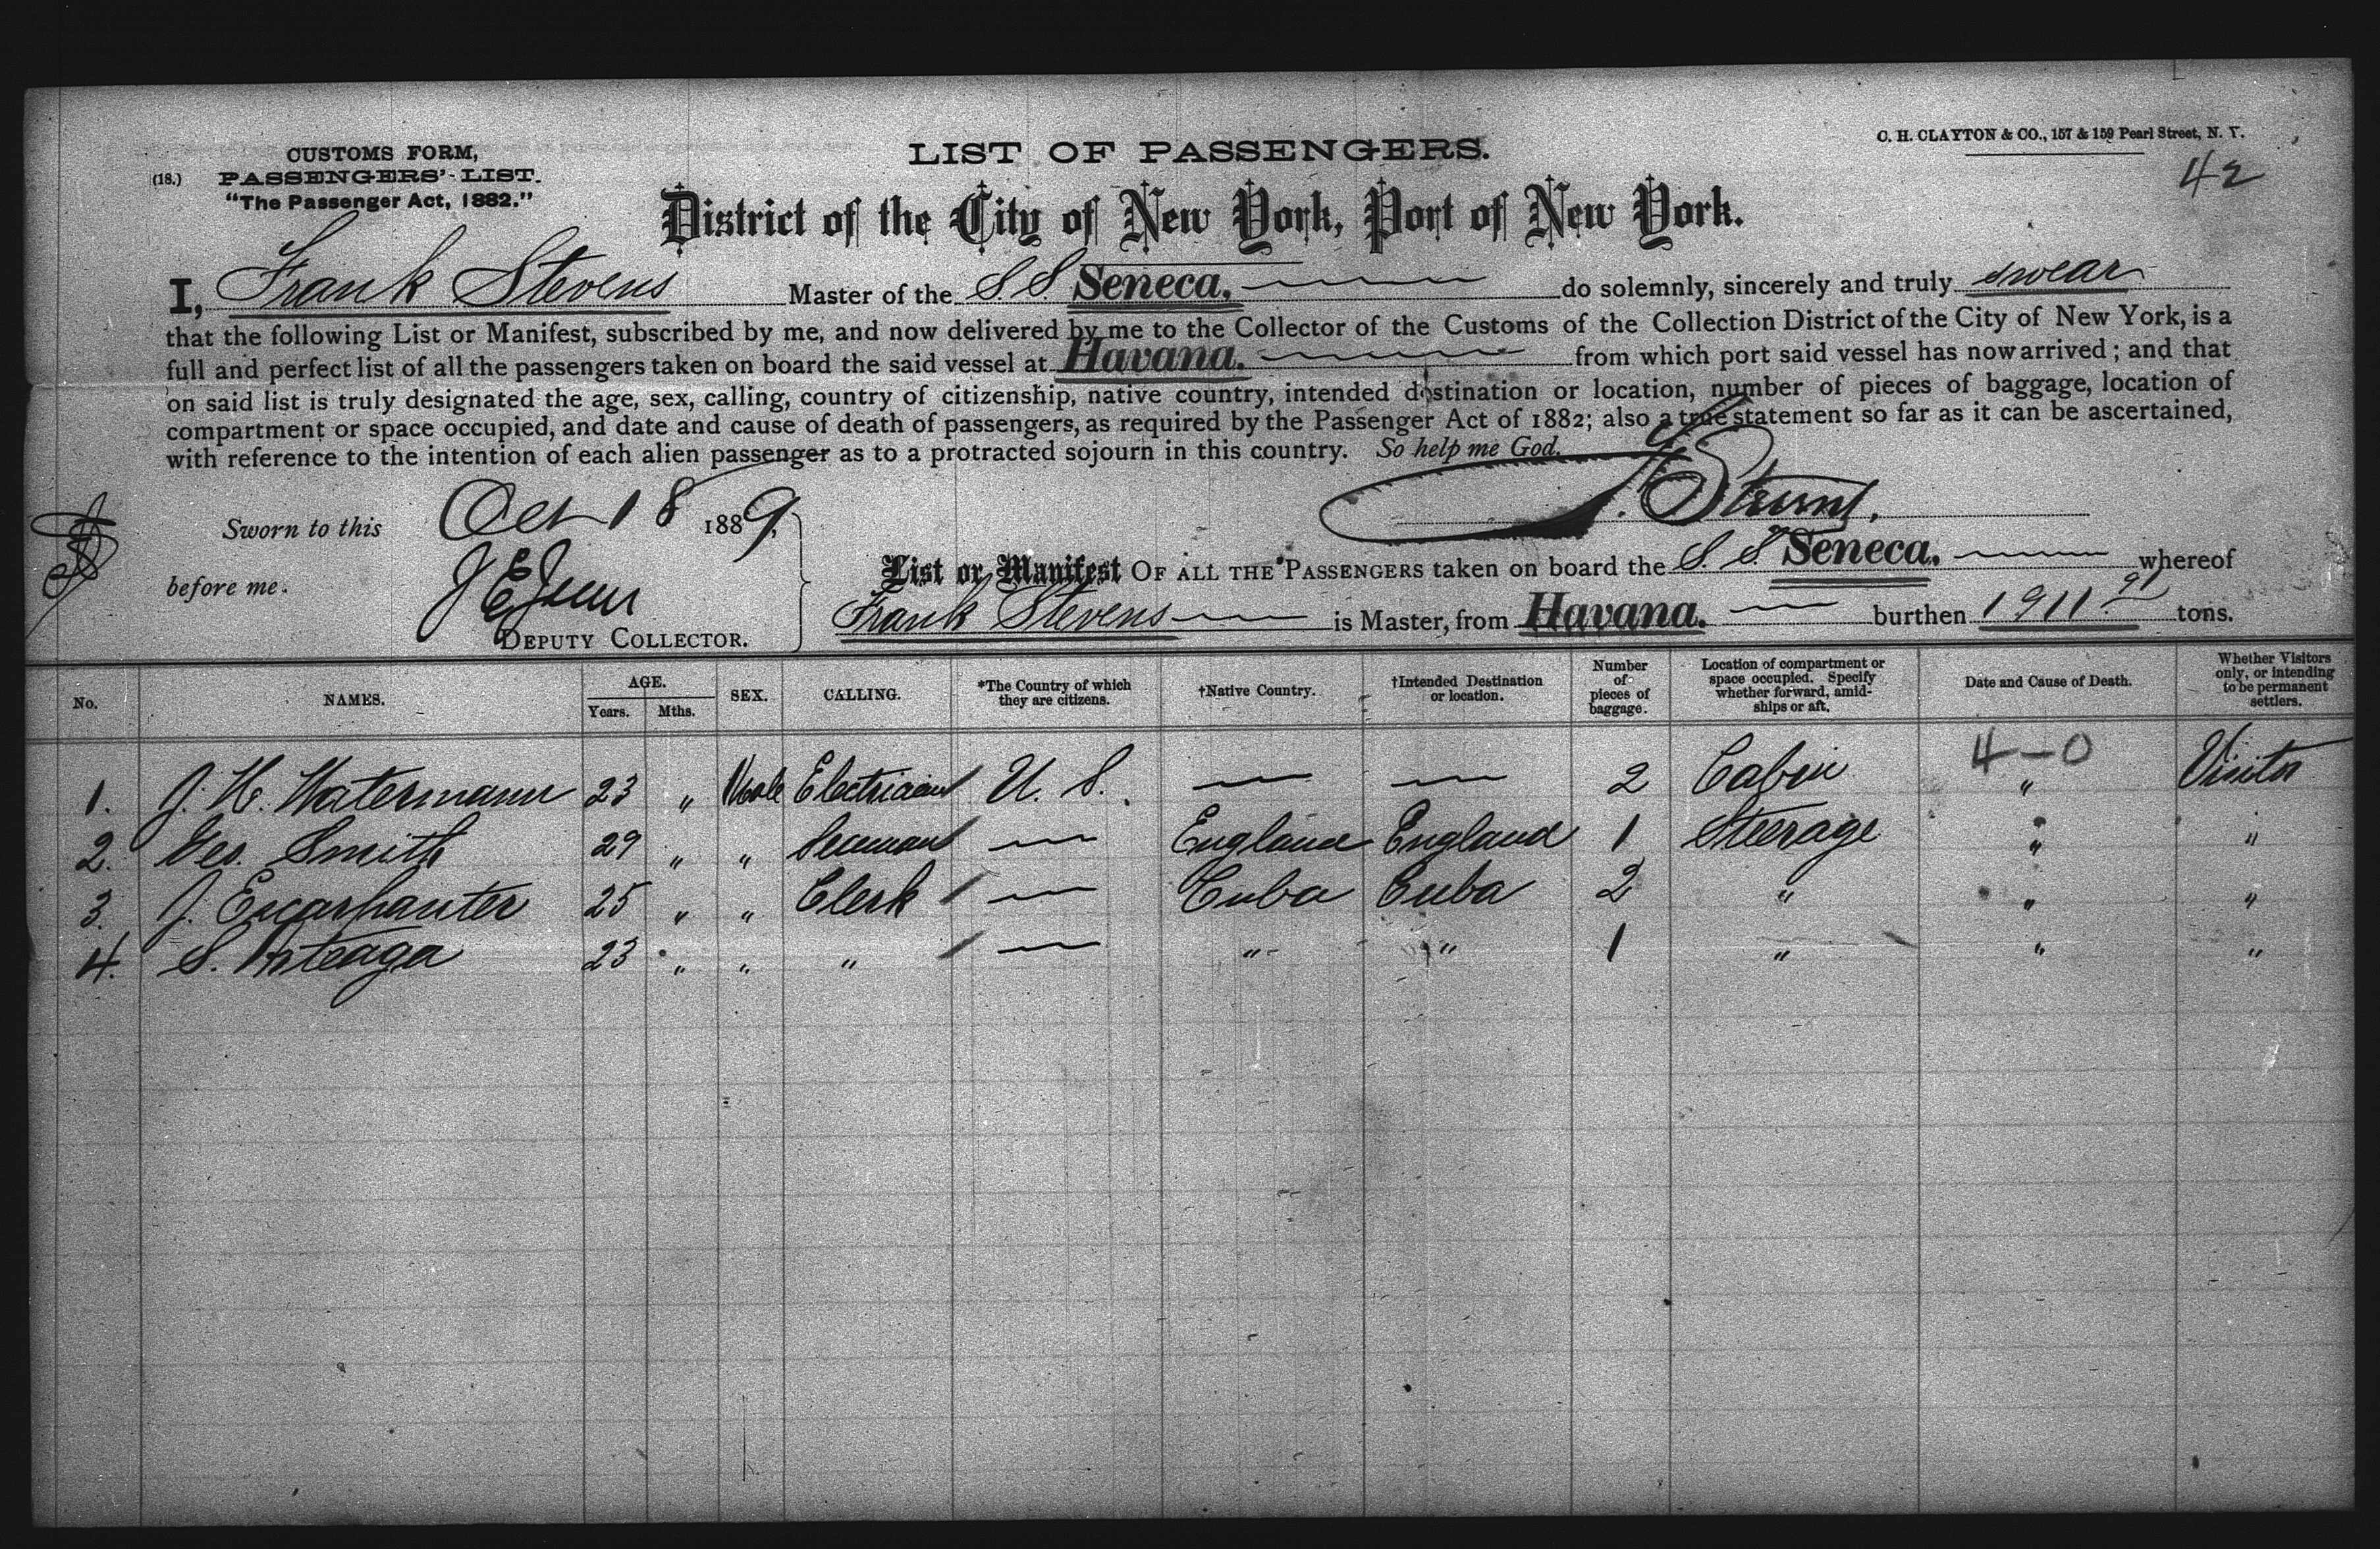 CUSTOMS FORM,
(18.) PASSENGERS'-LIST.
"The Passenger Act, 1882."
LIST OF PASSENGERS.
C. H. CLAYTON & CO., 157 & 159 Pearl Street, N. Y.
42
District of the City of New York, Port of New York.
I, Frank Stevens Master of the S.S. Seneca, do solemnly, sincerely and truly swear
that the following List or Manifest, subscribed by me, and now delivered by me to the Collector of the Customs of the Collection District of the City of New York, is a
full and perfect list of all the passengers taken on board the said vessel at Havana. from which port said vessel has now arrived; and that
on said list is truly designated the age, sex, calling, country of citizenship, native country, intended destination or location, number of pieces of baggage, location of
compartment or space occupied, and date and cause of death of passengers, as required by the Passenger Act of 1882; also a true statement so far as it can be ascertained,
with reference to the intention of each alien passenger as to a protracted sojourn in this country. So help me God.
Sworn to this Oct 18 1889,
before me.
DEPUTY COLLECTOR.
List or Manifest OF ALL THE PASSENGERS taken on board the S. S. Seneca. whereof
Frank Stevens is Master, from Havana. burthen 1911.91 tons.
No. NAMES. AGE. Years. Mths. SEX. CALLING. *The Country of which they are citizens. †Native Country. †Intended Destination or location. Number of pieces of baggage. Location of compartment or space occupied. Specify whether forward, amidships or aft. Date and Cause of Death. Whether Visitors only, or intending to be permanent settlers.
4-0
1. J. H. Watermann 23 " Male Electrician U. S. — — 2 Cabin " Visitor
2. Geo. Smith 29 " " Seaman — England England 1 Steerage " "
3. J. Escarpanter 25 " " Clerk — Cuba Cuba 2 " " "
4. S. Arteaga 23 " " " — " " 1 " " "